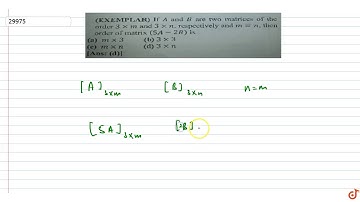 29975
(EXEMPLAR) If A and B are two matrices of the
order 3 × m and 3 × n, respectively and m = n, then
order of matrix (5A − 2B) is
(a) m × 3 (b) 3 × 3
(c) m × n (d) 3 × n
[Ans: (d)]
[A]3×m [B]3×n n=m
[5A]3×m [2B]